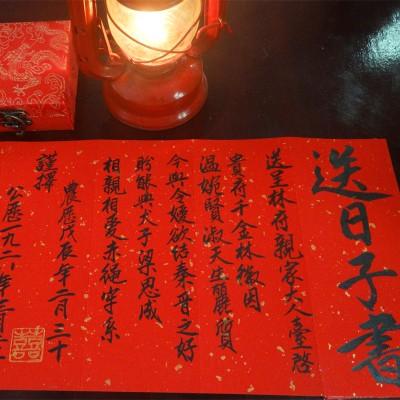 送日子書
送呈林府親家大人臺啓
貴府千金林徽因
温婉賢淑天生麗質
今與令嬡欲结秦晋之好
盼能與犬子梁思成
相親相爱赤绳牢系
農歷戊辰年二月三十
謹擇
公歷一九二八年三月
囍